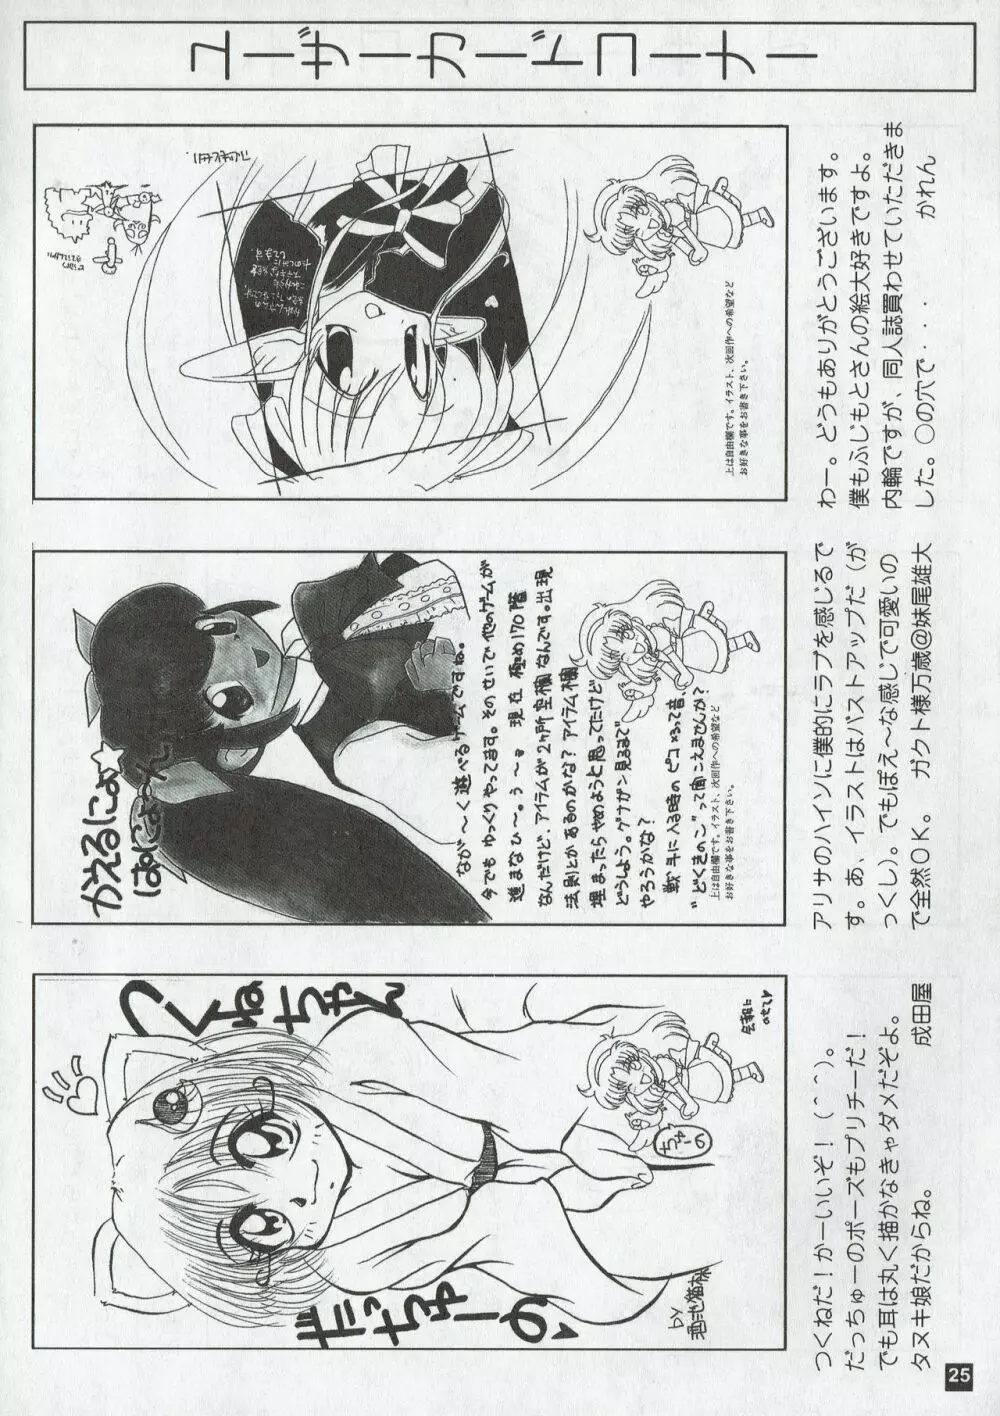 ユーザーカードコーナー
つくねちゃん
だっちゅーの
ちゅーの
会報に
のせて♥
BY
つくねだ！かーいいぞ！(＾＾)。
だっちゅーのポーズもプリチーだ！
でも耳は丸く描かなきゃダメだぞよ。
タヌキ娘だからね。　成田屋
かえるにょ
はにょ〜ん
なが〜く遊べるゲームですね。
今でもゆっくりやってます。そのせいで他のゲームが
進まなひ〜。う〜。現在 極め170階
なんだけど、アイテムが2ヶ所空欄なんです。出現
法則とかあるのかな？アイテム欄
埋まったらやめようと思ってたけど
どうしよう。グラガン見るまで
やろうかな？
戦斗に入る時のピコーンって音、
“どくきのこ”って聞こえませんか？
上は自由欄です。イラスト、次回作への希望など
お好きな事をお書き下さい。
アリサのハイソに僕的にラブを感じるで
す。あ、イラストはバストアップだ（が
っくし）。でもぽえ〜な感じで可愛いの
で全然ＯＫ。　ガクト様万歳@妹尾雄大
上は自由欄です。イラスト、次回作への希望など
お好きな事をお書き下さい。
わー。どうもありがとうございます。
僕もふじもとさんの絵大好きですよ。
内輪ですが、同人誌買わせていただきま
した。○の穴で・・・　かれん
25